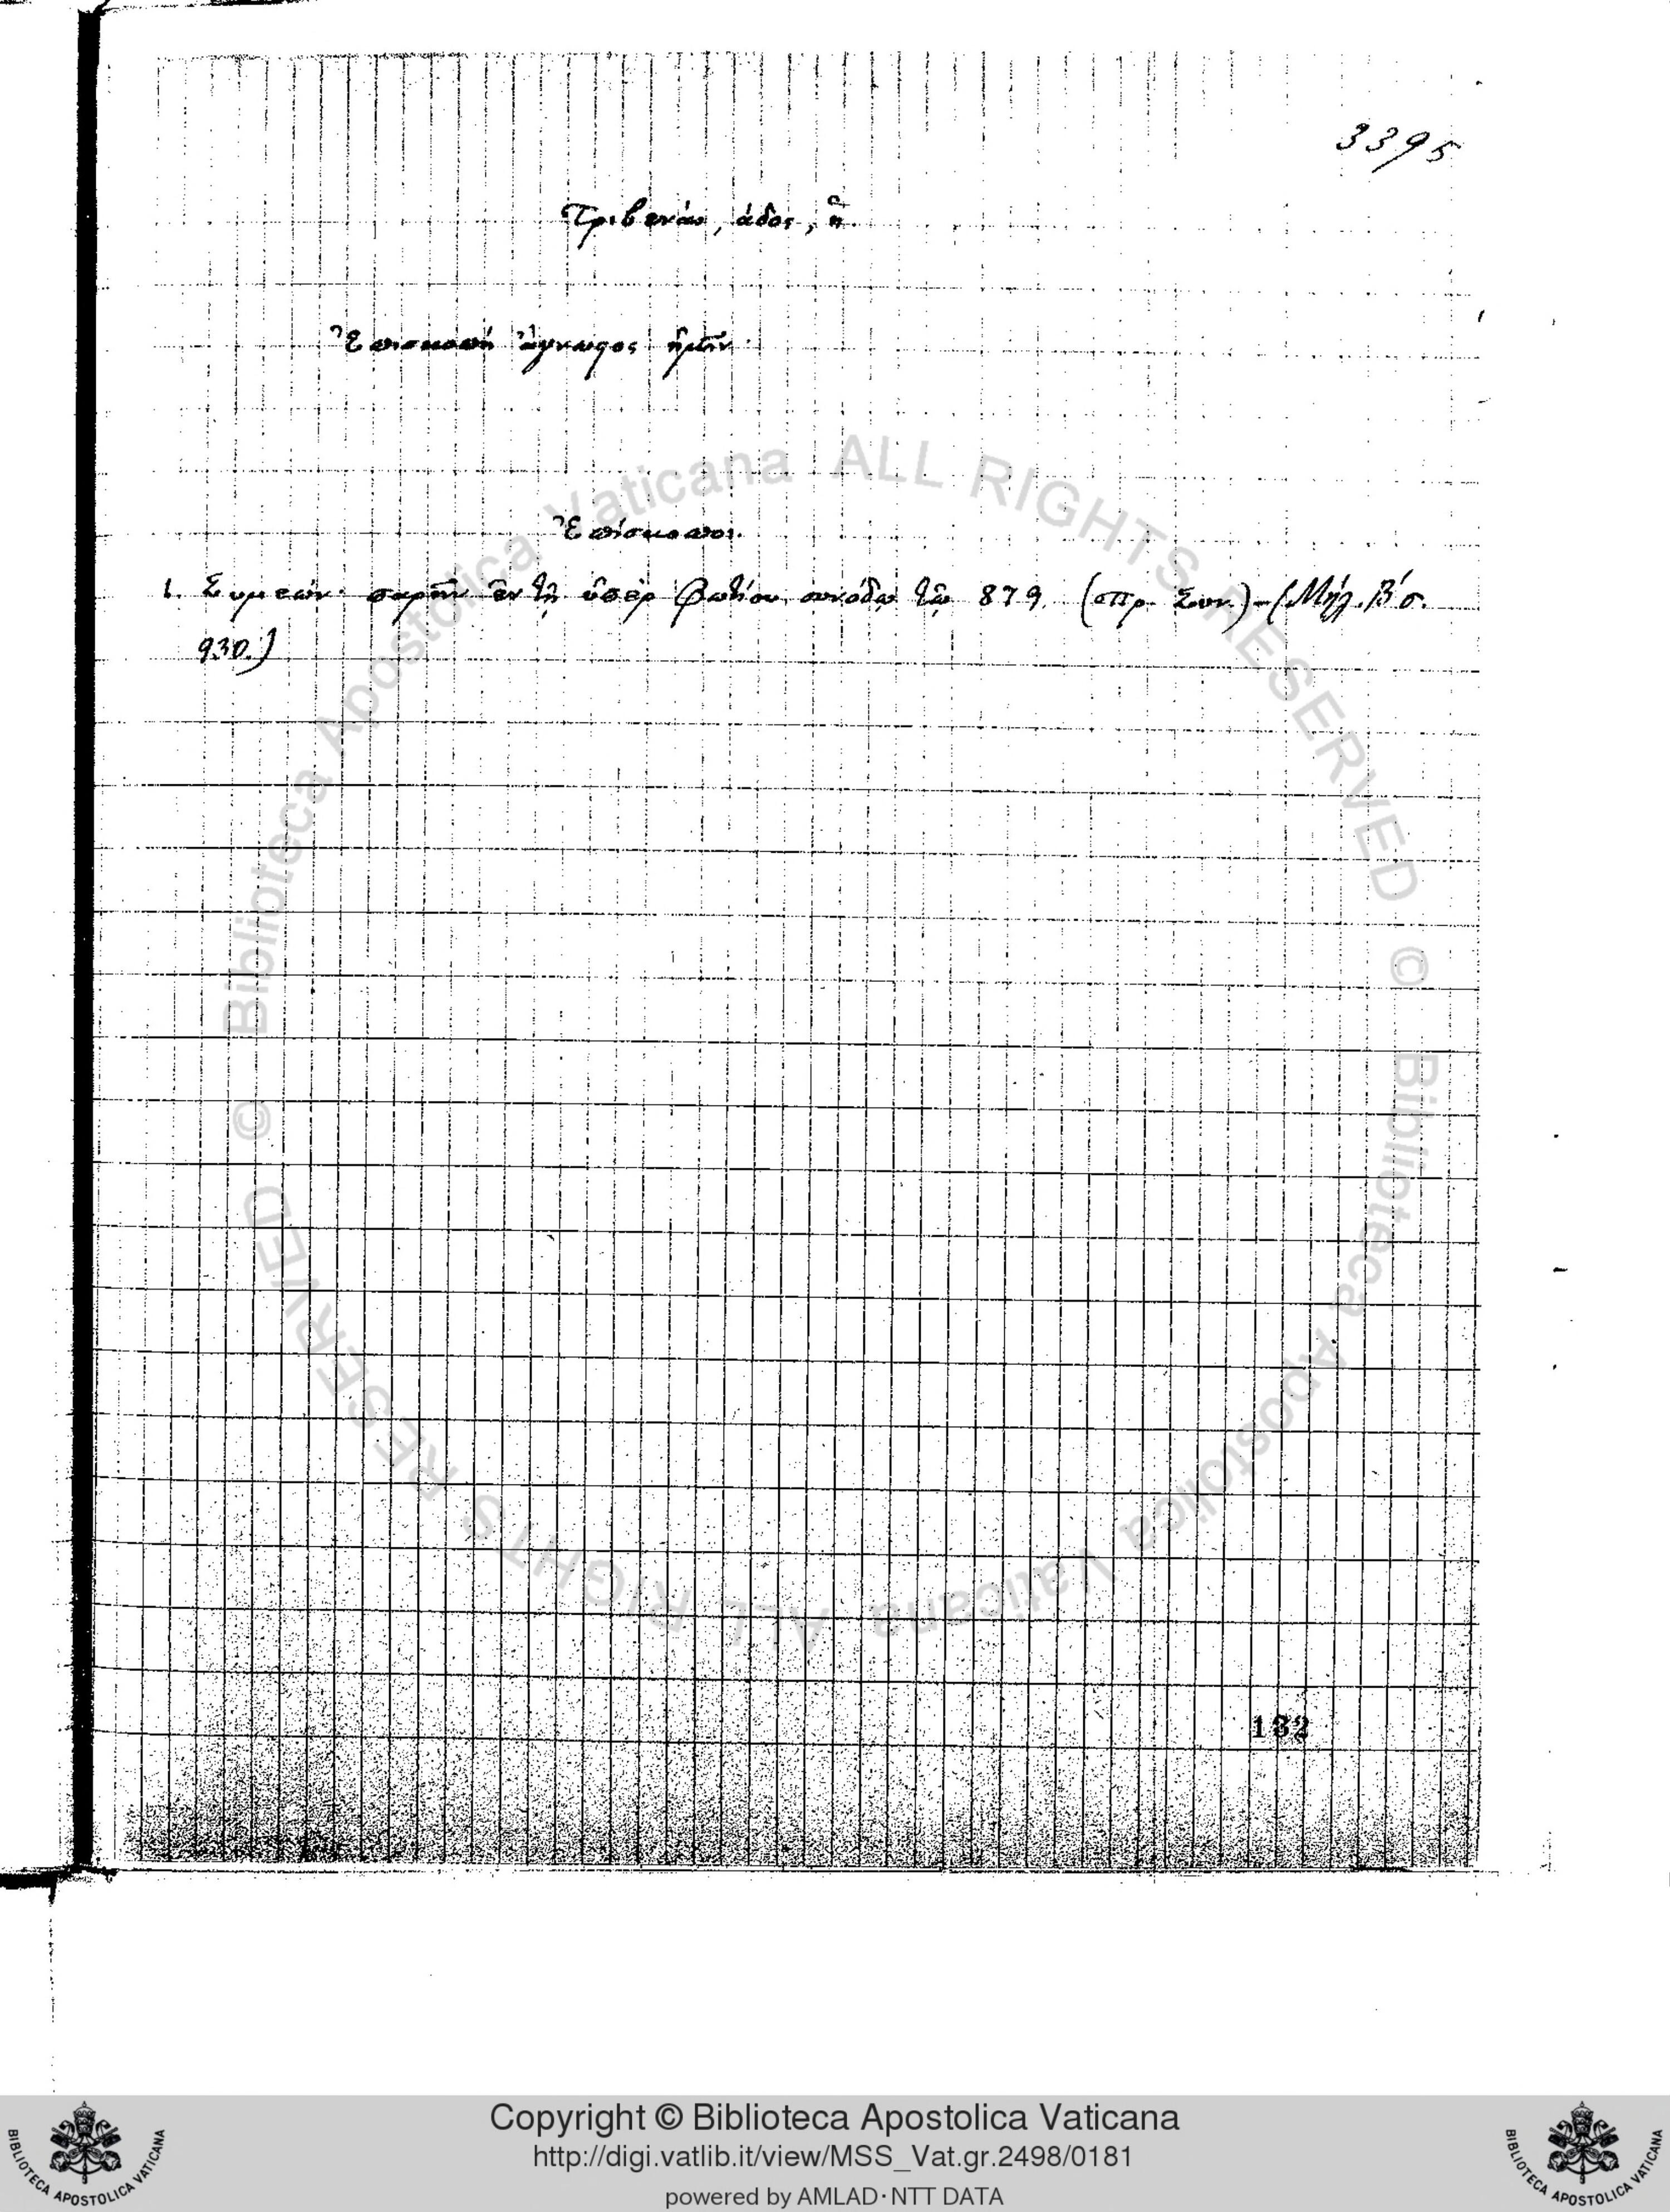 3395
Τριβενάς, άδος, ἡ.
Ἐπισκοπή ἄγνωστος ἡμῖν.
Ἐπίσκοποι.
1. Συμεών· παρῆν ἐν τῇ ὑπὲρ Φωτίου συνόδῳ τῷ 879 (πρ. Συν.)-(Μήλ. Β΄ σ.
930.)
182
Copyright © Biblioteca Apostolica Vaticana
http://digi.vatlib.it/view/MSS_Vat.gr.2498/0181
powered by AMLAD·NTT DATA
BIBLIOTECA APOSTOLICA VATICANA
BIBLIOTECA APOSTOLICA VATICANA
© Biblioteca Apostolica Vaticana ALL RIGHTS RESERVED
© Biblioteca Apostolica Vaticana ALL RIGHTS RESERVED